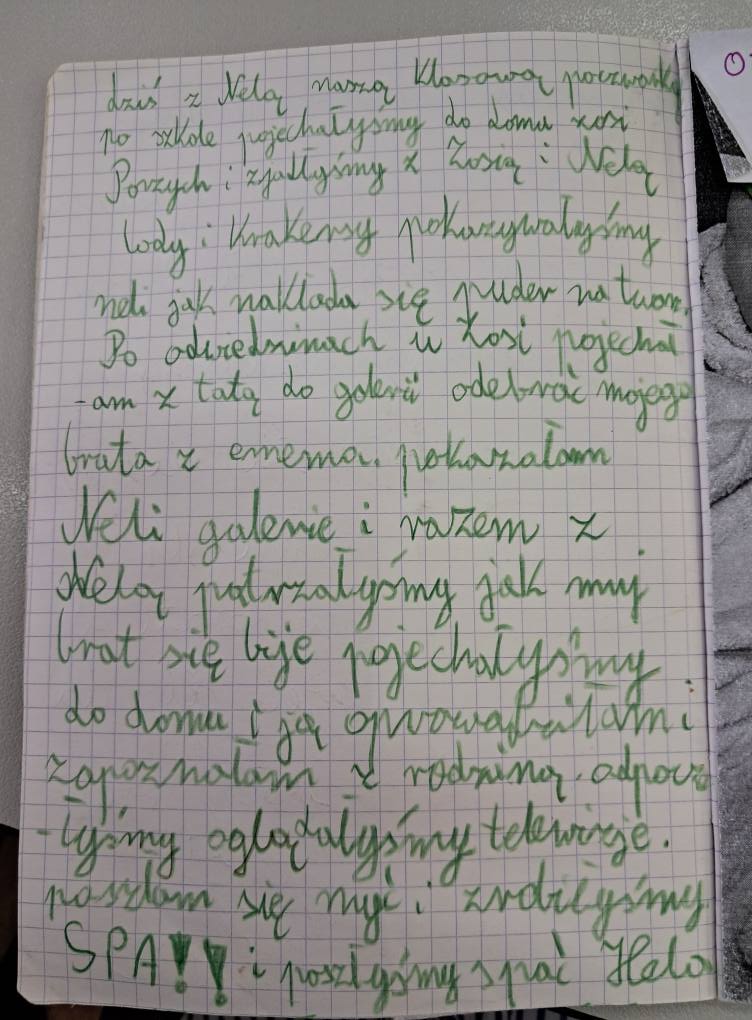 dziś z Nelą naszą klasową poczwarką
po szkole pojechałyśmy do domu zosi
Porzych i zjadłyśmy z Zosią i Nelą
lody i Krakersy pokazywałyśmy
neli jak nakłada się puder na twarz.
Po odwiedzinach u Zosi pojechał
-am z tatą do galerii odebrać mojego
brata z emema. pokazałam
Neli galerie i razem z
Nelą patrzałyśmy jak muj
brat się bije pojechałyśmy
do domu i ją oprowadziłam i
zapoznałam z rodziną. odpocz
-łyśmy oglądałyśmy telewizje.
poszłam się myć i zrobiłyśmy
SPA!! i poszłyśmy spać Hela